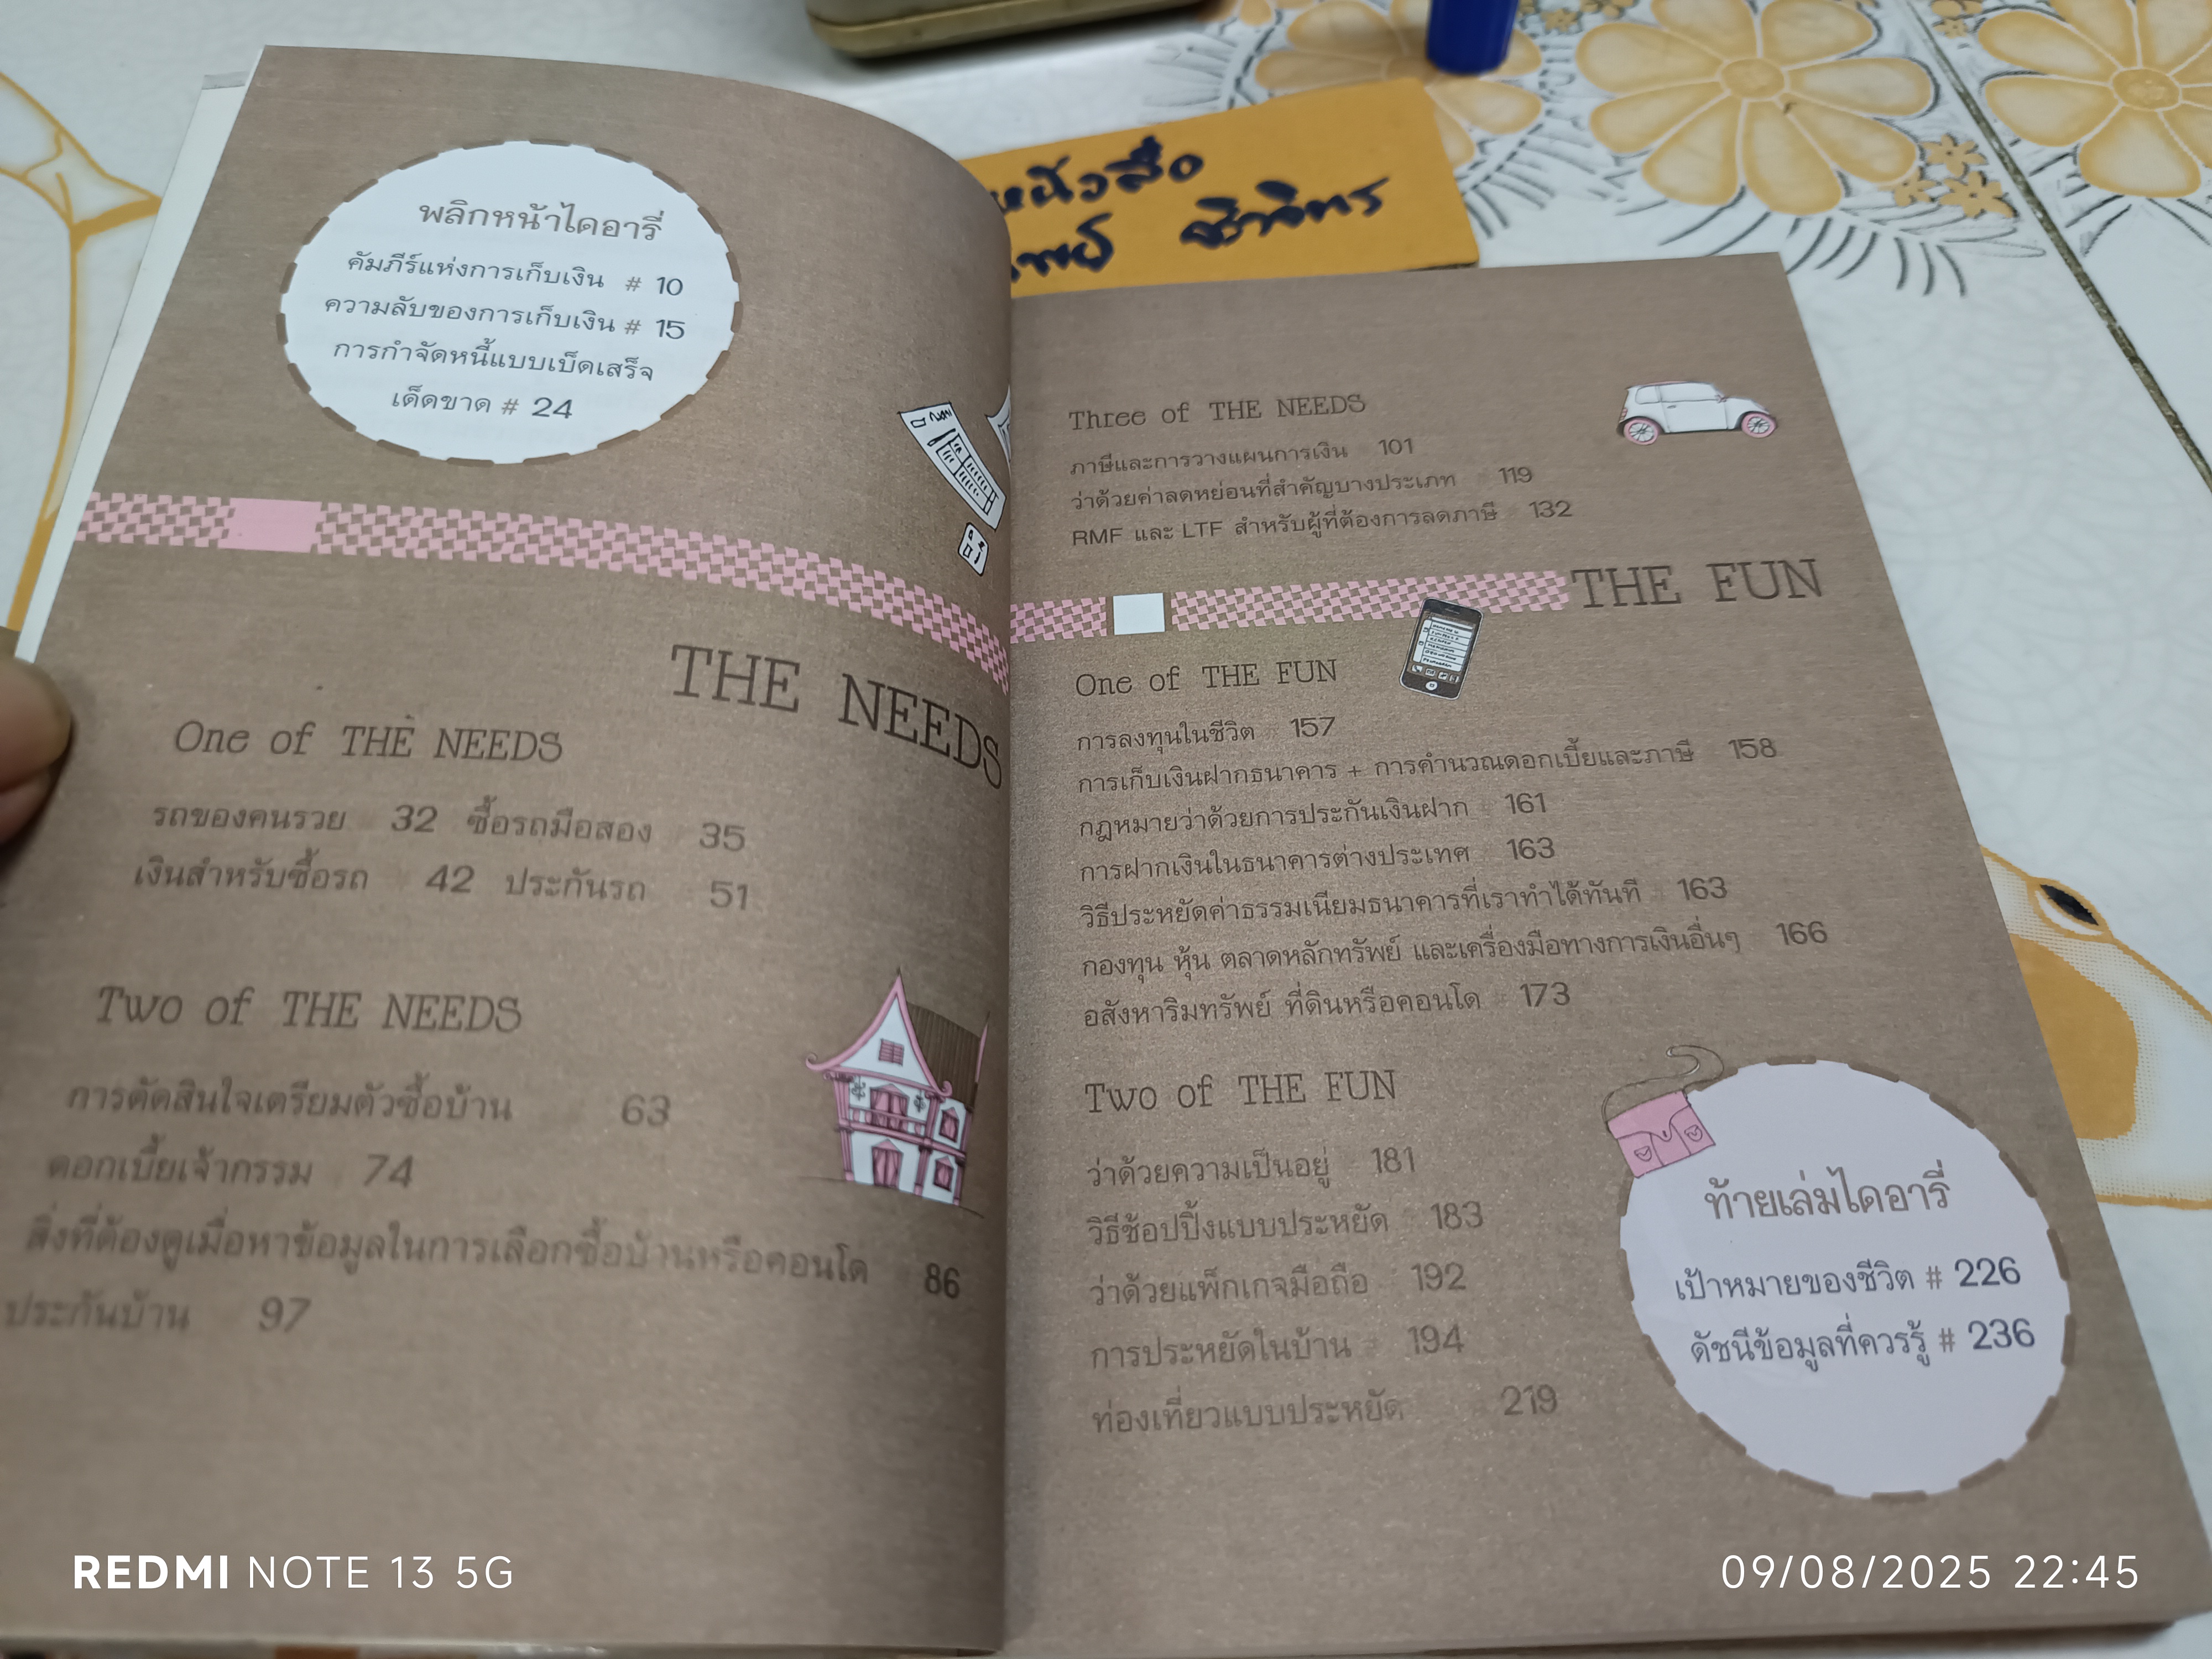 พลิกหน้าไดอารี่
คัมภีร์แห่งการเก็บเงิน # 10
ความลับของการเก็บเงิน # 15
การกำจัดหนี้แบบเบ็ดเสร็จ
เด็ดขาด # 24
THE NEEDS
One of THE NEEDS
รถของคนรวย 32 ซื้อรถมือสอง 35
เงินสำหรับซื้อรถ 42 ประกันรถ 51
Two of THE NEEDS
การตัดสินใจเตรียมตัวซื้อบ้าน 63
ดอกเบี้ยเจ้ากรรม 74
สิ่งที่ต้องดูเมื่อหาข้อมูลในการเลือกซื้อบ้านหรือคอนโด 86
ประกันบ้าน 97
หนังสือ
Three of THE NEEDS
ภาษีและการวางแผนการเงิน 101
ว่าด้วยค่าลดหย่อนที่สำคัญบางประเภท 119
RMF และ LTF สำหรับผู้ที่ต้องการลดภาษี 132
THE FUN
One of THE FUN
การลงทุนในชีวิต 157
การเก็บเงินฝากธนาคาร + การคำนวณดอกเบี้ยและภาษี 158
กฎหมายว่าด้วยการประกันเงินฝาก 161
การฝากเงินในธนาคารต่างประเทศ 163
วิธีประหยัดค่าธรรมเนียมธนาคารที่เราทำได้ทันที 163
กองทุน หุ้น ตลาดหลักทรัพย์ และเครื่องมือทางการเงินอื่นๆ 166
อสังหาริมทรัพย์ ที่ดินหรือคอนโด 173
Two of THE FUN
ว่าด้วยความเป็นอยู่ 181
วิธีช้อปปิ้งแบบประหยัด 183
ว่าด้วยแพ็กเกจมือถือ 192
การประหยัดในบ้าน 194
ท่องเที่ยวแบบประหยัด 219
ท้ายเล่มไดอารี่
เป้าหมายของชีวิต # 226
ดัชนีข้อมูลที่ควรรู้ # 236
REDMI NOTE 13 5G
09/08/2025 22:45